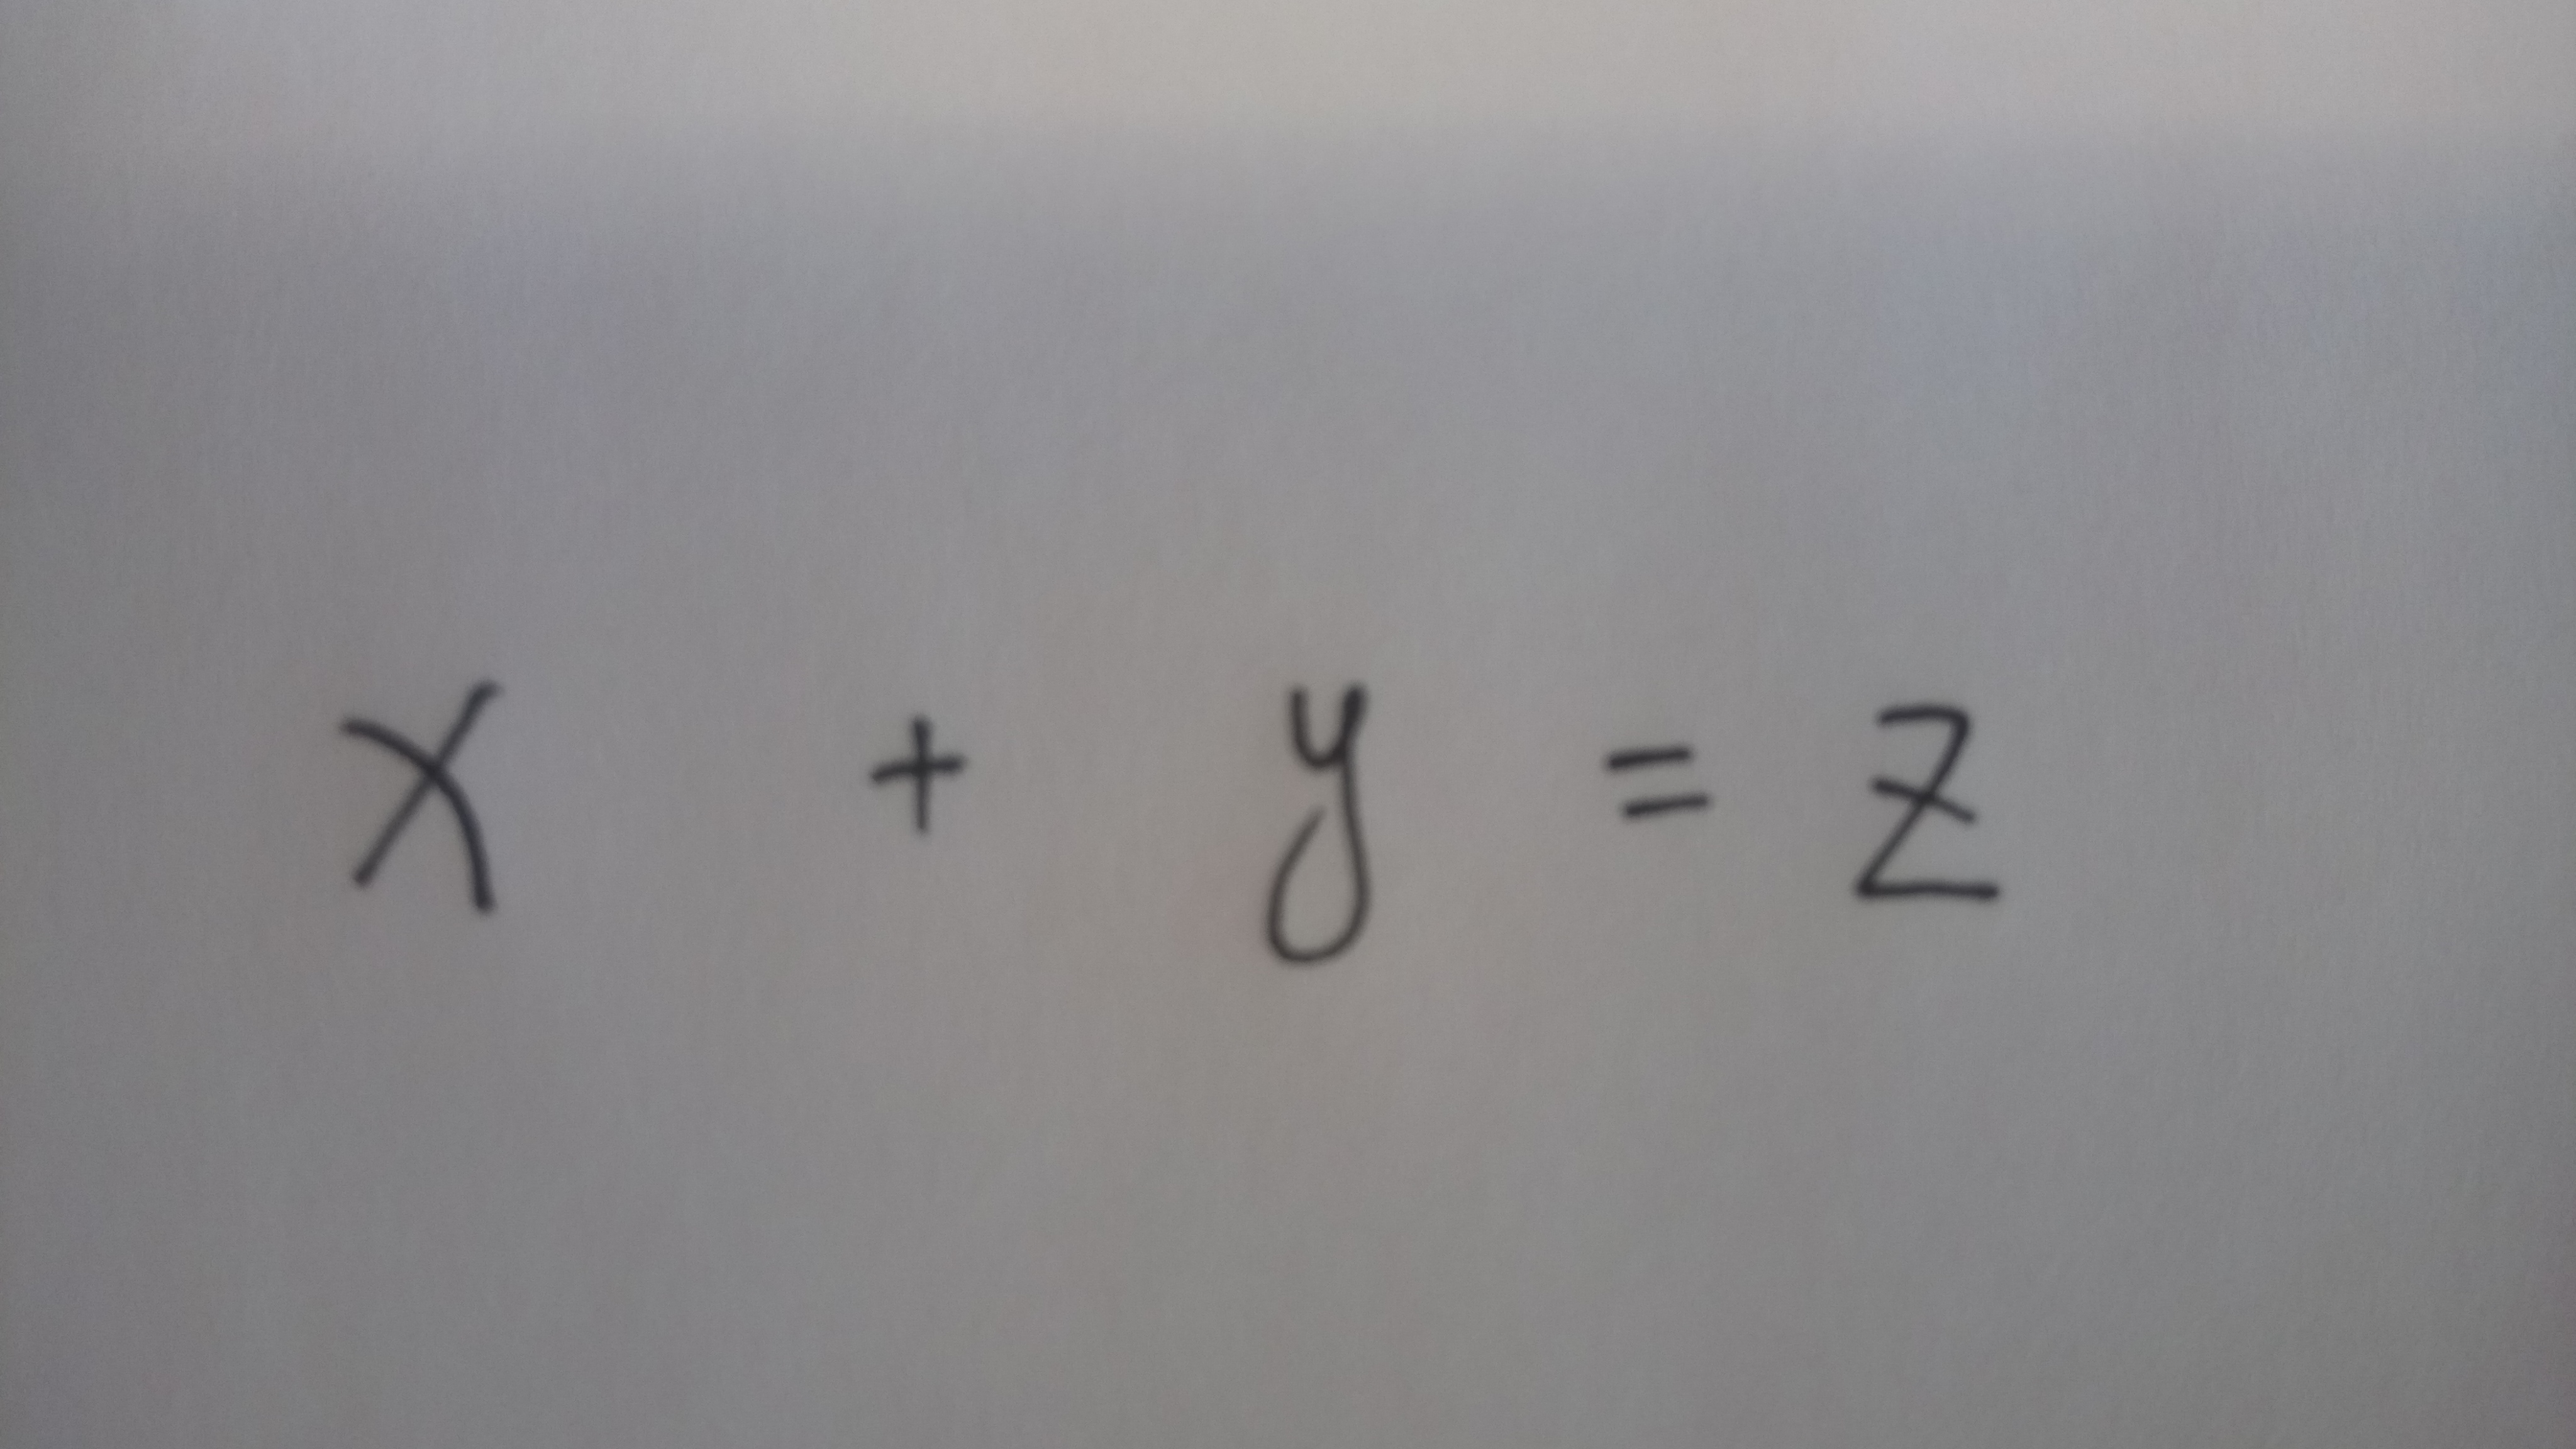 x + y = z